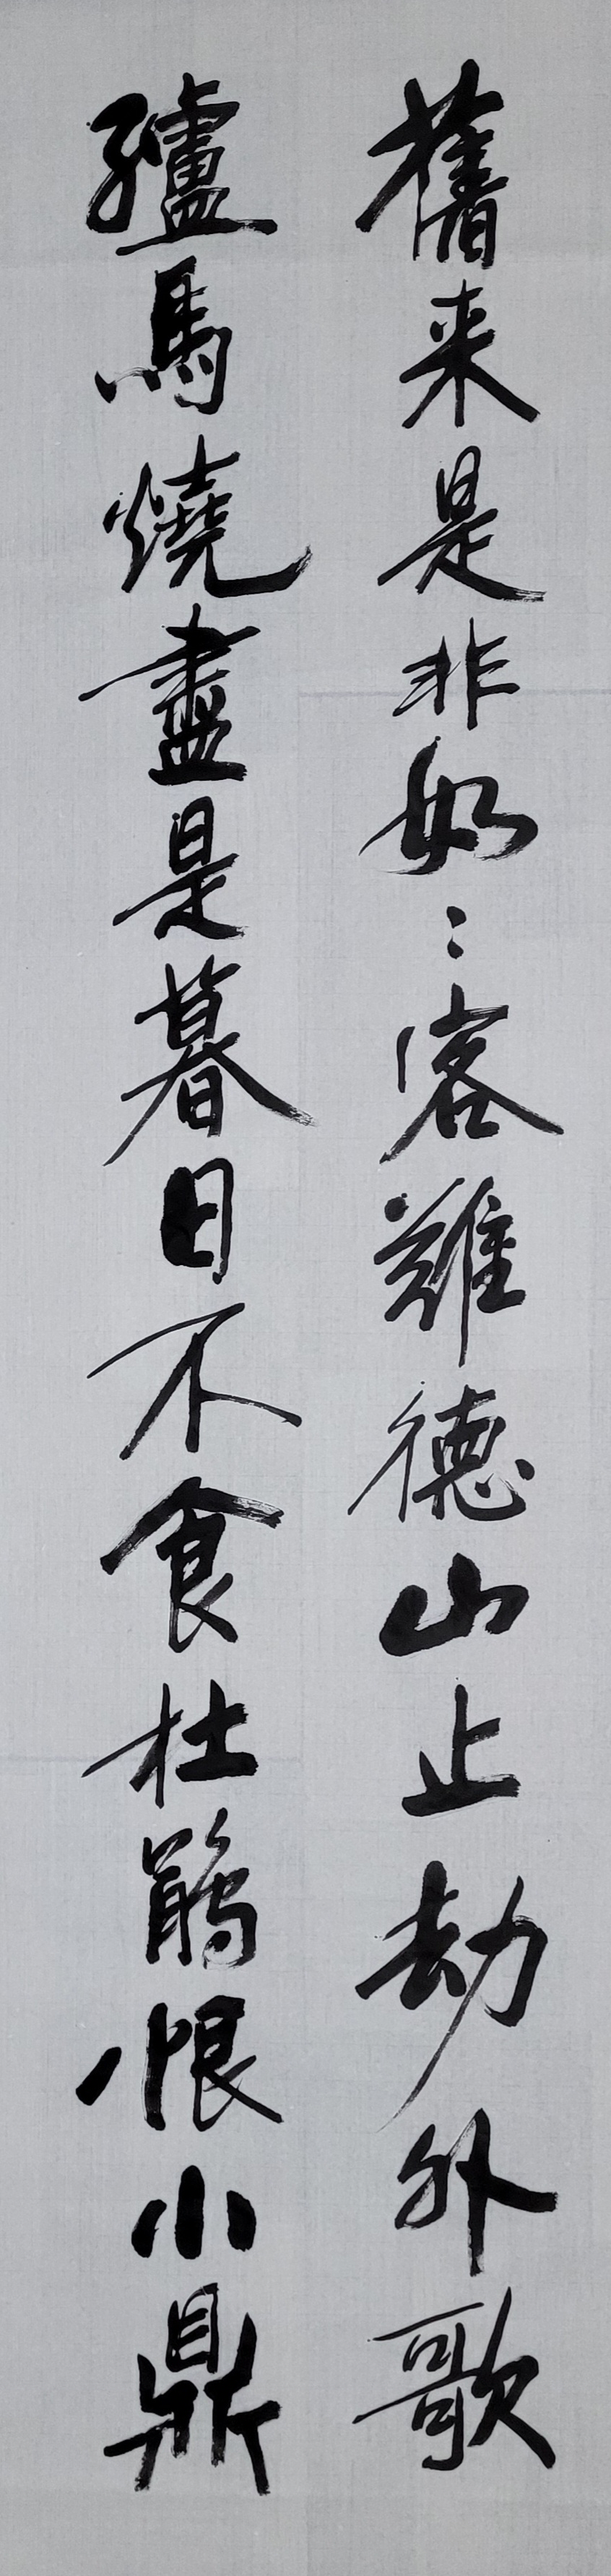 舊来是非如〻客難德山止劫外歌
纑馬燒盡是暮日不食杜鵑恨小鼎